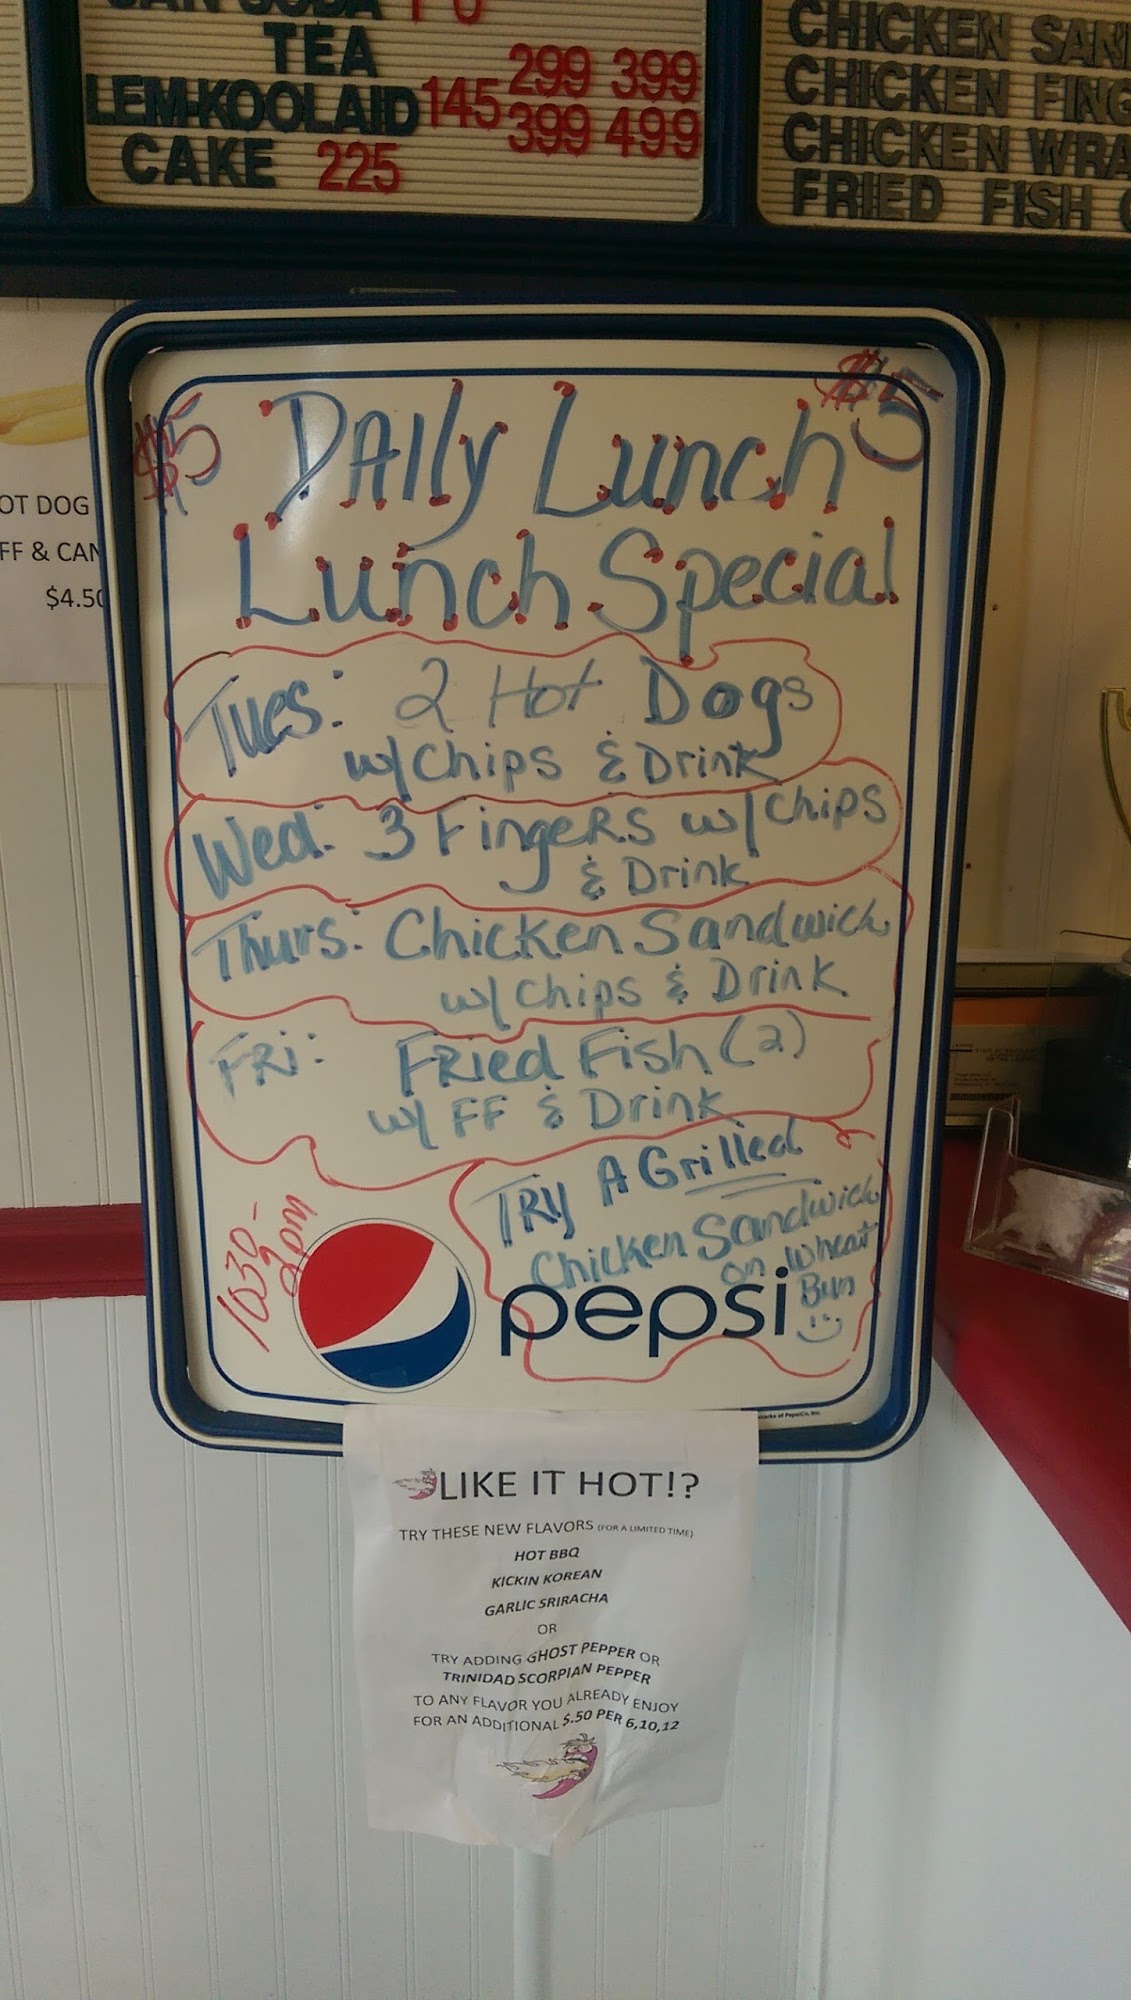 TEA 299 399
LEM-KOOLAID 145 399 499
CAKE 225
CHICKEN
CHICKEN
CHICKEN
FRIED FISH
DOG
$4.50
$5 DAIly Lunch $5
Lunch Special
Tues: 2 Hot Dogs
w/ Chips & Drink
Wed: 3 Fingers w/ Chips
& Drink
Thurs: Chicken Sandwich
w/ Chips & Drink
FRI: FRied Fish (2)
w/ FF & Drink
TRY A Grilled
Chicken Sandwich
on Wheat
Bun
1030-
2pm
pepsi
LIKE IT HOT!?
TRY THESE NEW FLAVORS (FOR A LIMITED TIME)
HOT BBQ
KICKIN KOREAN
GARLIC SRIRACHA
OR
TRY ADDING GHOST PEPPER OR
TRINIDAD SCORPIAN PEPPER
TO ANY FLAVOR YOU ALREADY ENJOY
FOR AN ADDITIONAL $.50 PER 6,10,12